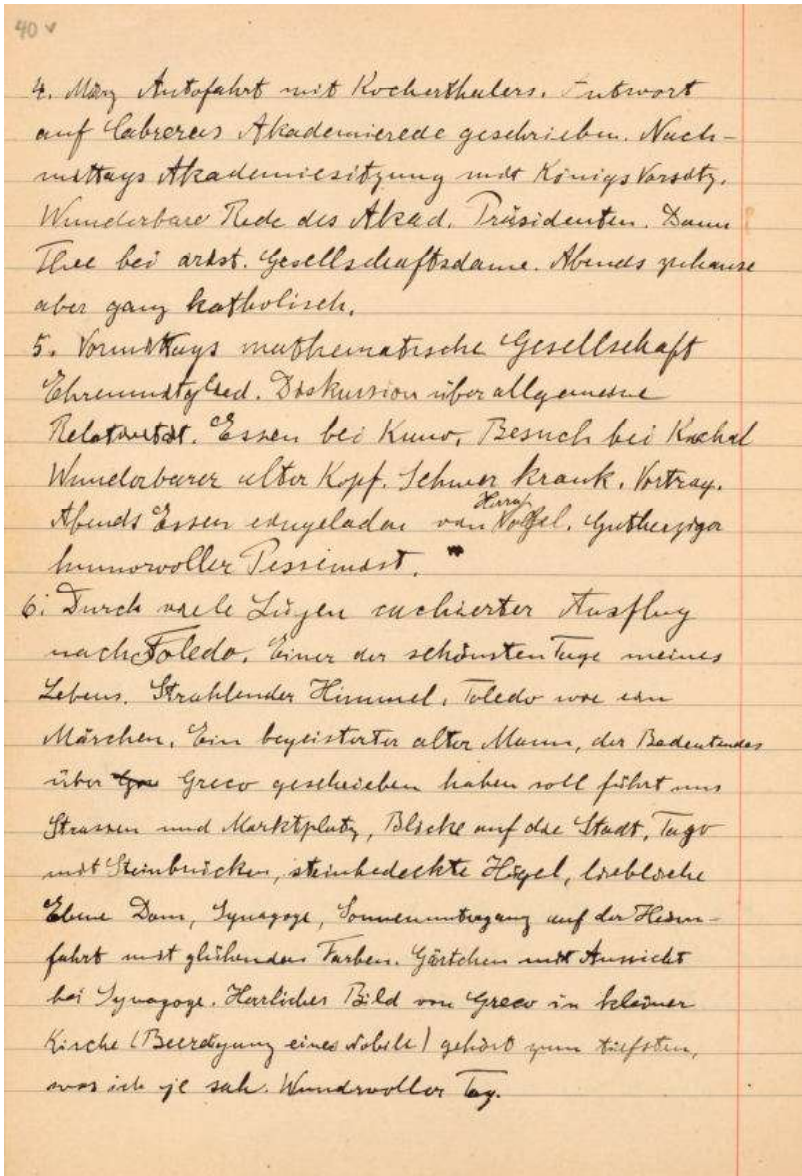 40 v
4. März Autofahrt mit Kocherthalers. Antwort
auf Cabreras Akademierede geschrieben. Nach-
mittags Akademiesitzung mit Königs Vorsitz.
Wunderbare Rede des Akad. Präsidenten. Dann
Thee bei arist. Gesellschaftsdame. Abends zuhause
aber ganz katholisch.
5. Vormittags mathematische Gesellschaft
Ehrenmitglied. Diskussion über allgemeine
Relativität. Essen bei Kuno. Besuch bei Kachal
Wunderbarer alter Kopf. Schwer krank. Vortrag.
Abends Essen eingeladen von Herrn Vogel. Gutherziger
humorvoller Pessimist.
6. Durch viele Lügen cachierter Ausflug
nach Toledo. Einer der schönsten Tage meines
Lebens. Strahlender Himmel. Toledo wie ein
Märchen. Ein begeisterter alter Mann, der Bedeutendes
über Greco geschrieben haben soll führt uns
Strassen und Marktplatz, Blicke auf die Stadt, Tajo
mit Steinbrücken, steinbedeckte Hügel, liebliche
Ebene Dom, Synagoge, Sonnenuntergang auf der Heim-
fahrt mit glühenden Farben. Gärtchen mit Aussicht
bei Synagoge. Herrliches Bild von Greco in kleiner
Kirche (Beerdigung eines Nobile) gehört zum tiefsten,
was ich je sah. Wundervoller Tag.